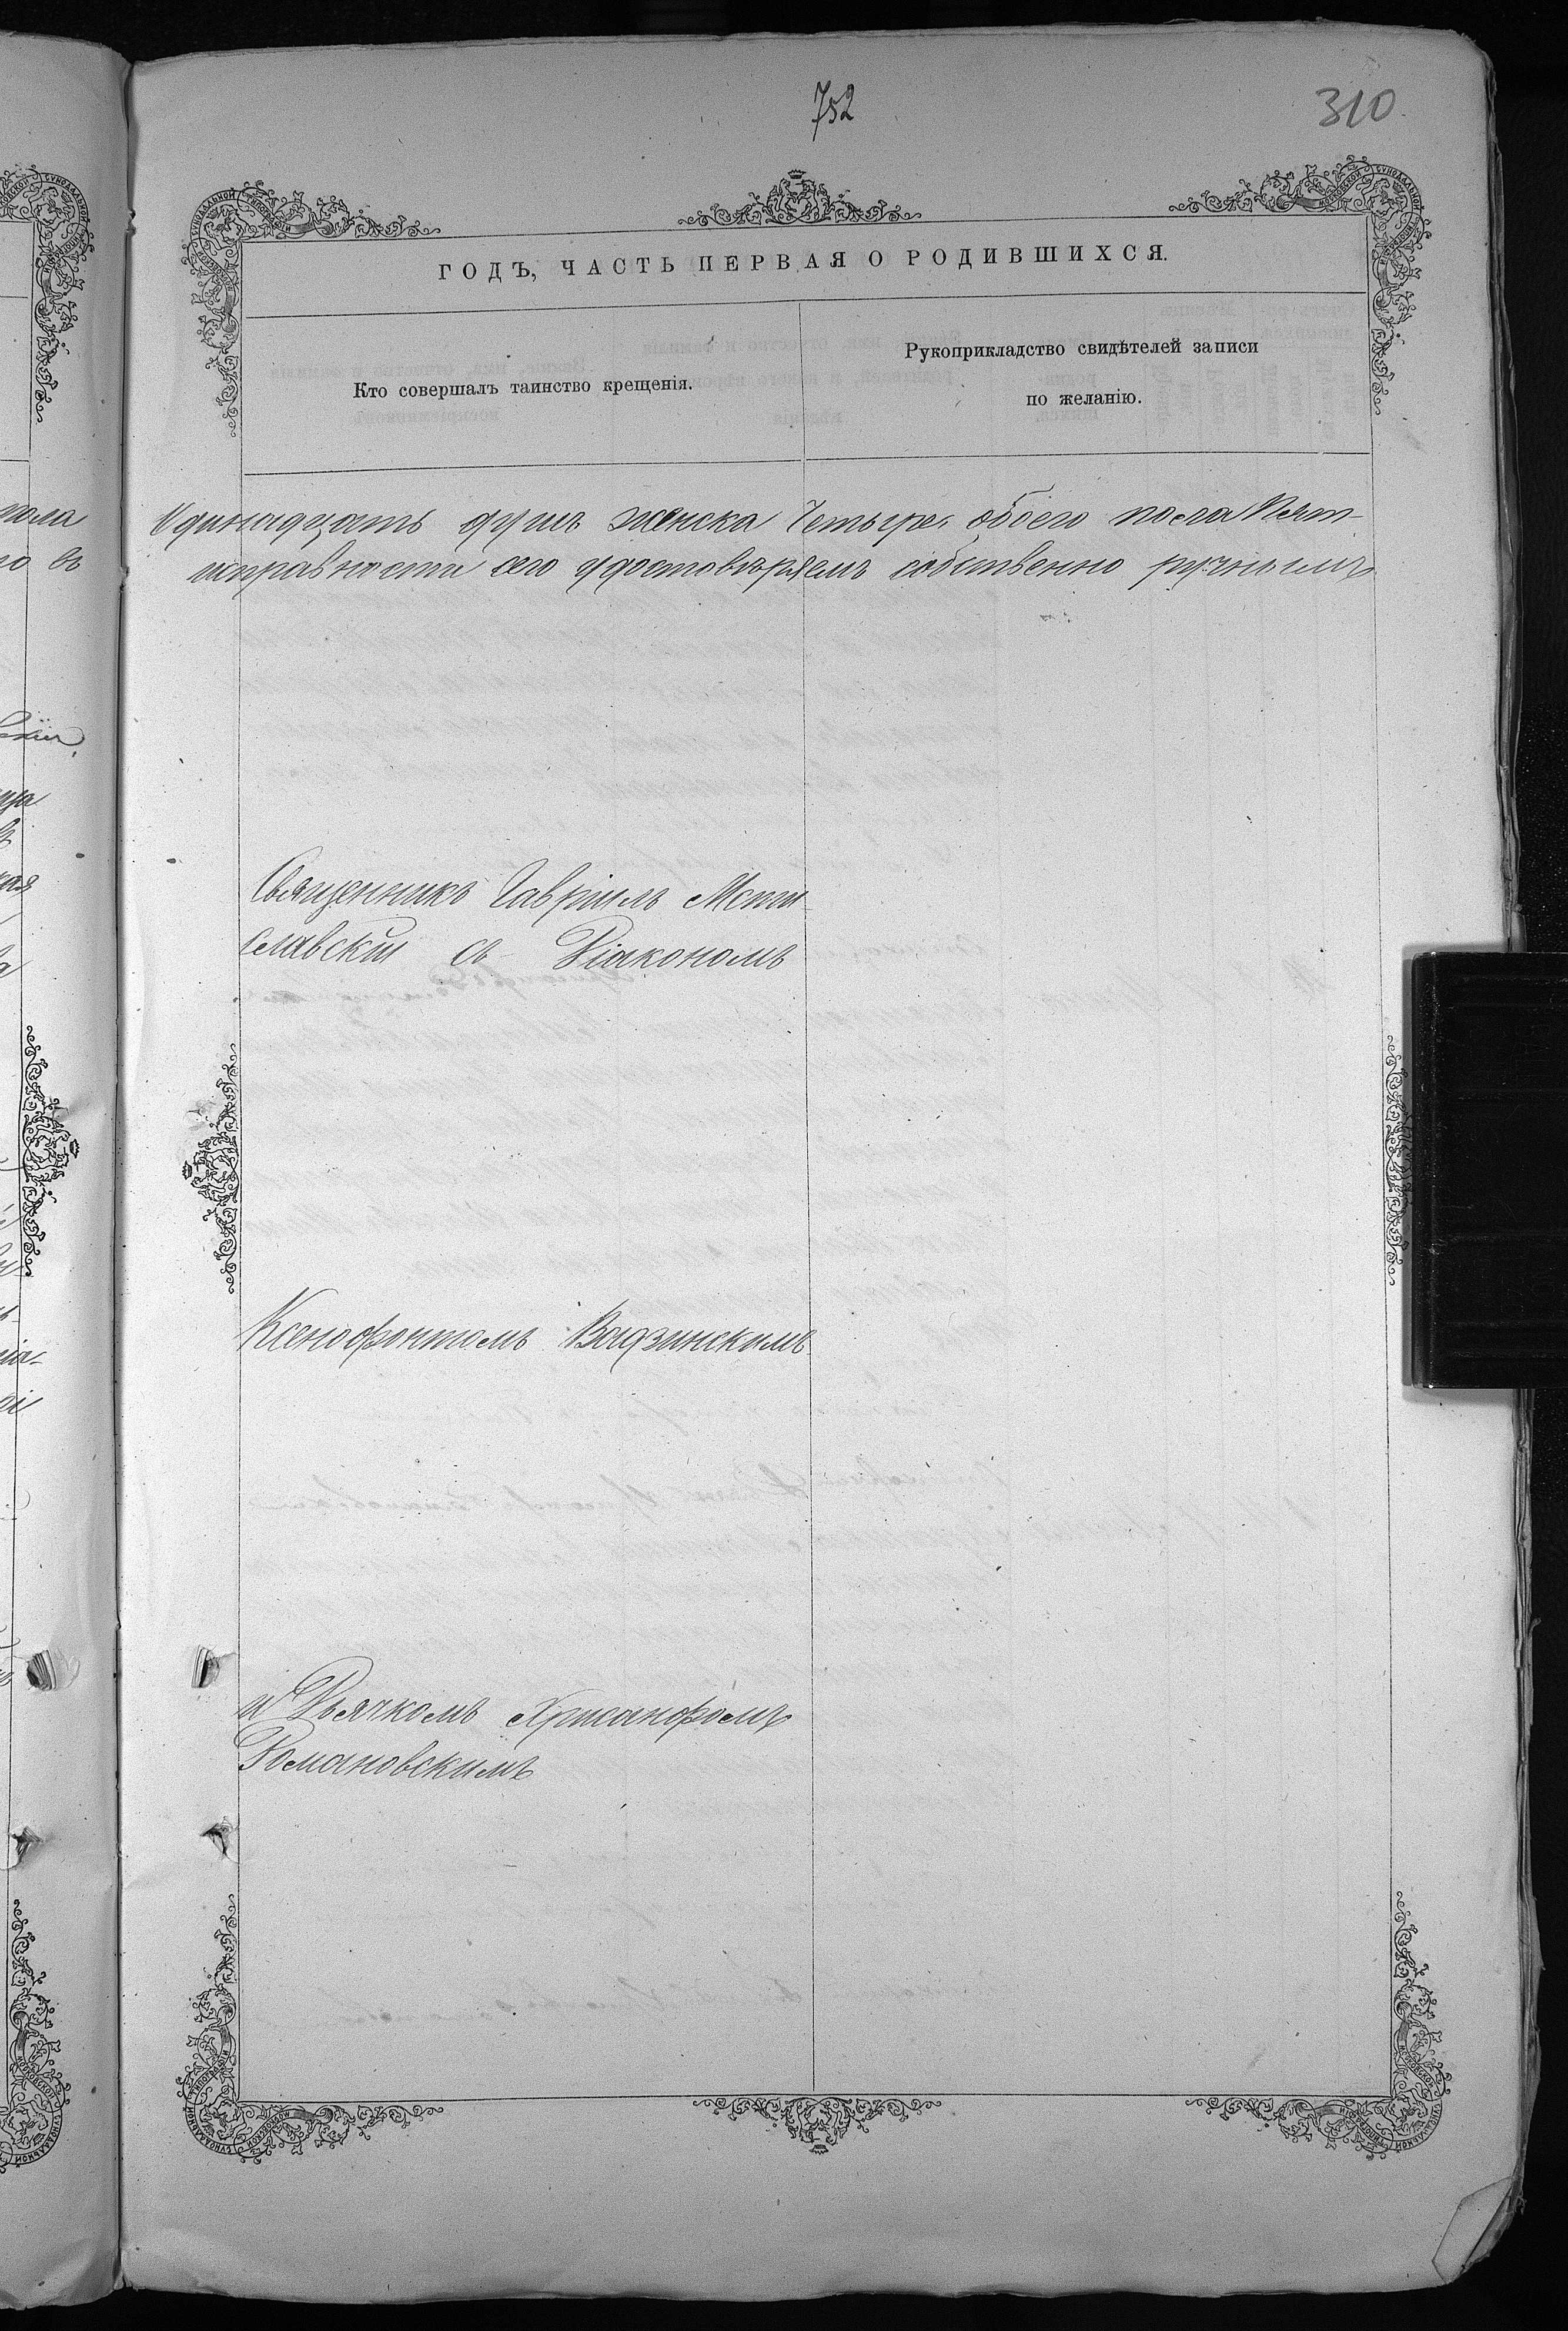 752
310
ГОДЪ, ЧАСТЬ ПЕРВАЯ О РОДИВШИХСЯ.
Кто совершалъ таинство крещенія.
Рукоприкладство свидѣтелей записи
по желанію.
Одинадцать душъ женска Четыре, обоего посла Пят-
исправности сего удостовѣряемъ собственно ручнымъ
Священникъ Гавріилъ Мсти-
славскій съ Діакономъ
Ксенофонтомъ Вадзинскимъ
и Дьячкомъ Хрисанфомъ
Романовскимъ